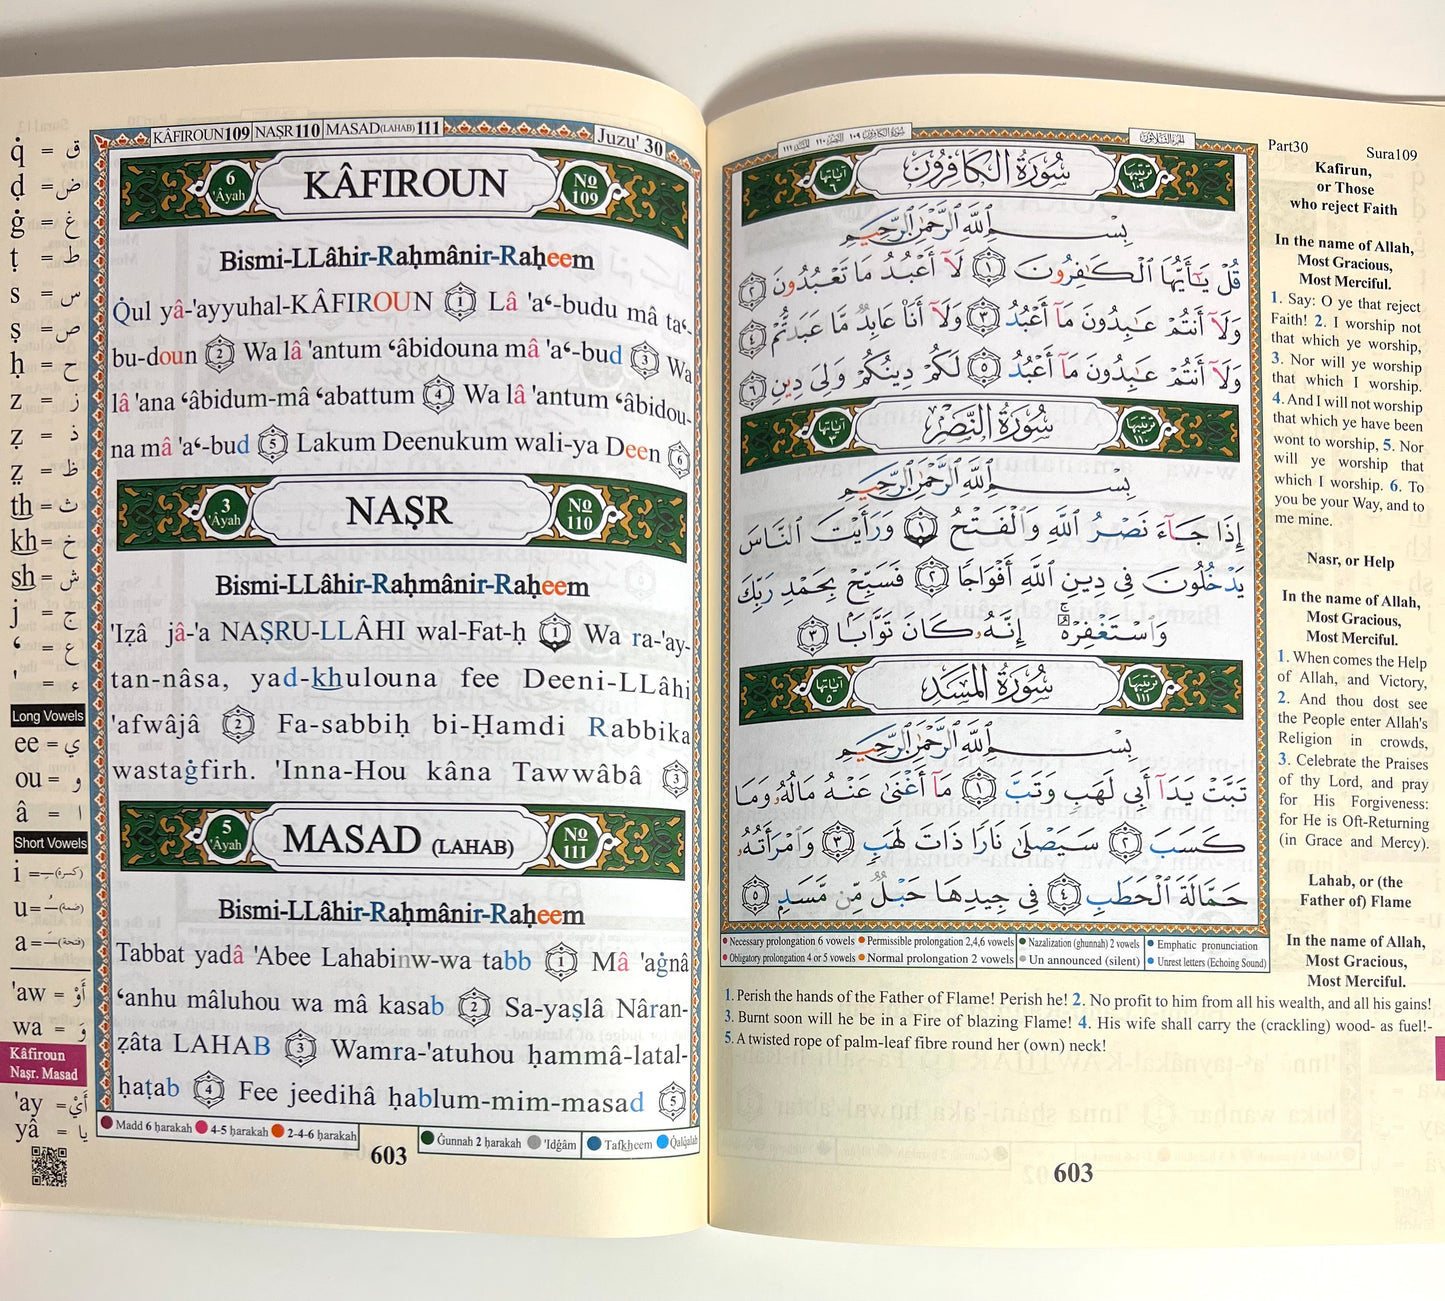 KÂFIROUN109 NAṢR110 MASAD(LAHAB) 111
Juzu' 30
q̇ = ق
ḍ = ض
ġ = غ
ṭ = ط
s = س
ṣ = ص
ḥ = ح
z = ز
ẓ = ذ
ẓ = ظ
th = ث
kh = خ
sh = ش
j = ج
ʻ = ع
' = ء
Long Vowels
ee = ي
ou = و
â = ا
Short Vowels
i = (كسرة)
u = (ضمة)
a = (فتحة)
'aw = أَوْ
wa = وَ
Kâfiroun
Naṣr. Masad
'ay = أَيْ
yâ = يا
6
'Âyah
KÂFIROUN
No
109
Bismi-LLâhir-Raḥmânir-Raḥeem
Q̇ul yâ-'ayyuhal-KÂFIROUN 1 Lâ 'aʻ-budu mâ taʻ-
bu-doun 2 Wa lâ 'antum ʻâbidouna mâ 'aʻ-bud 3 Wa
lâ 'ana ʻâbidum-mâ ʻabattum 4 Wa lâ 'antum ʻâbidou-
na mâ 'aʻ-bud 5 Lakum Deenukum wali-ya Deen 6
3
'Âyah
NAṢR
No
110
Bismi-LLâhir-Raḥmânir-Raḥeem
'Iẓâ jâ-'a NAṢRU-LLÂHI wal-Fat-ḥ 1 Wa ra-'ay-
tan-nâsa, yad-khulouna fee Deeni-LLâhi
'afwâjâ 2 Fa-sabbiḥ bi-Ḥamdi Rabbika
wastaġfirh. 'Inna-Hou kâna Tawwâbâ 3
5
'Âyah
MASAD (LAHAB)
No
111
Bismi-LLâhir-Raḥmânir-Raḥeem
Tabbat yadâ 'Abee Lahabinw-wa tabb 1 Mâ 'aġnâ
ʻanhu mâluhou wa mâ kasab 2 Sa-yaṣlâ Nâran-
ẓâta LAHAB 3 Wamra-'atuhou ḥammâ-latal-
ḥaṭab 4 Fee jeedihâ ḥablum-mim-masad 5
Madd 6 ḥarakah 4-5 ḥarakah 2-4-6 ḥarakah
Ġunnah 2 ḥarakah 'Idġâm Tafkheem Q̇alq̇alah
603
سُورَةُ الكافِرُون ١٠٩ النَّصْر ١١٠ المَسَد ١١١
الجزء الثلاثون
آياتها ٦
سُورَةُ الكَافِرُونَ
ترتيبها ١٠٩
بِسْمِ اللَّهِ الرَّحْمَٰنِ الرَّحِيمِ
قُلْ يَٰٓأَيُّهَا ٱلْكَٰفِرُونَ ١ لَآ أَعْبُدُ مَا تَعْبُدُونَ ٢
وَلَآ أَنتُمْ عَٰبِدُونَ مَآ أَعْبُدُ ٣ وَلَآ أَنَا۠ عَابِدٌ مَّا عَبَدتُّمْ ٤
وَلَآ أَنتُمْ عَٰبِدُونَ مَآ أَعْبُدُ ٥ لَكُمْ دِينُكُمْ وَلِىَ دِينِ ٦
آياتها ٣
سُورَةُ النَّصْرِ
ترتيبها ١١٠
بِسْمِ اللَّهِ الرَّحْمَٰنِ الرَّحِيمِ
إِذَا جَآءَ نَصْرُ ٱللَّهِ وَٱلْفَتْحُ ١ وَرَأَيْتَ ٱلنَّاسَ
يَدْخُلُونَ فِى دِينِ ٱللَّهِ أَفْوَاجًا ٢ فَسَبِّحْ بِحَمْدِ رَبِّكَ
وَٱسْتَغْفِرْهُ إِنَّهُۥ كَانَ تَوَّابًۢا ٣
آياتها ٥
سُورَةُ المَسَدِ
ترتيبها ١١١
بِسْمِ اللَّهِ الرَّحْمَٰنِ الرَّحِيمِ
تَبَّتْ يَدَآ أَبِى لَهَبٍ وَتَبَّ ١ مَآ أَغْنَىٰ عَنْهُ مَالُهُۥ وَمَا
كَسَبَ ٢ سَيَصْلَىٰ نَارًا ذَاتَ لَهَبٍ ٣ وَٱمْرَأَتُهُۥ
حَمَّالَةَ ٱلْحَطَبِ ٤ فِى جِيدِهَا حَبْلٌ مِّن مَّسَدٍۭ ٥
Necessary prolongation 6 vowels Permissible prolongation 2,4,6 vowels Nazalization (ghunnah) 2 vowels Emphatic pronunciation
Obligatory prolongation 4 or 5 vowels Normal prolongation 2 vowels Un announced (silent) Unrest letters (Echoing Sound)
Part30 Sura109
Kafirun,
or Those
who reject Faith
In the name of Allah,
Most Gracious,
Most Merciful.
1. Say: O ye that reject
Faith! 2. I worship not
that which ye worship,
3. Nor will ye worship
that which I worship.
4. And I will not worship
that which ye have been
wont to worship, 5. Nor
will ye worship that
which I worship. 6. To
you be your Way, and to
me mine.
Nasr, or Help
In the name of Allah,
Most Gracious,
Most Merciful.
1. When comes the Help
of Allah, and Victory,
2. And thou dost see
the People enter Allah's
Religion in crowds,
3. Celebrate the Praises
of thy Lord, and pray
for His Forgiveness:
for He is Oft-Returning
(in Grace and Mercy).
Lahab, or (the
Father of) Flame
In the name of Allah,
Most Gracious,
Most Merciful.
1. Perish the hands of the Father of Flame! Perish he! 2. No profit to him from all his wealth, and all his gains!
3. Burnt soon will he be in a Fire of blazing Flame! 4. His wife shall carry the (crackling) wood- as fuel!-
5. A twisted rope of palm-leaf fibre round her (own) neck!
603